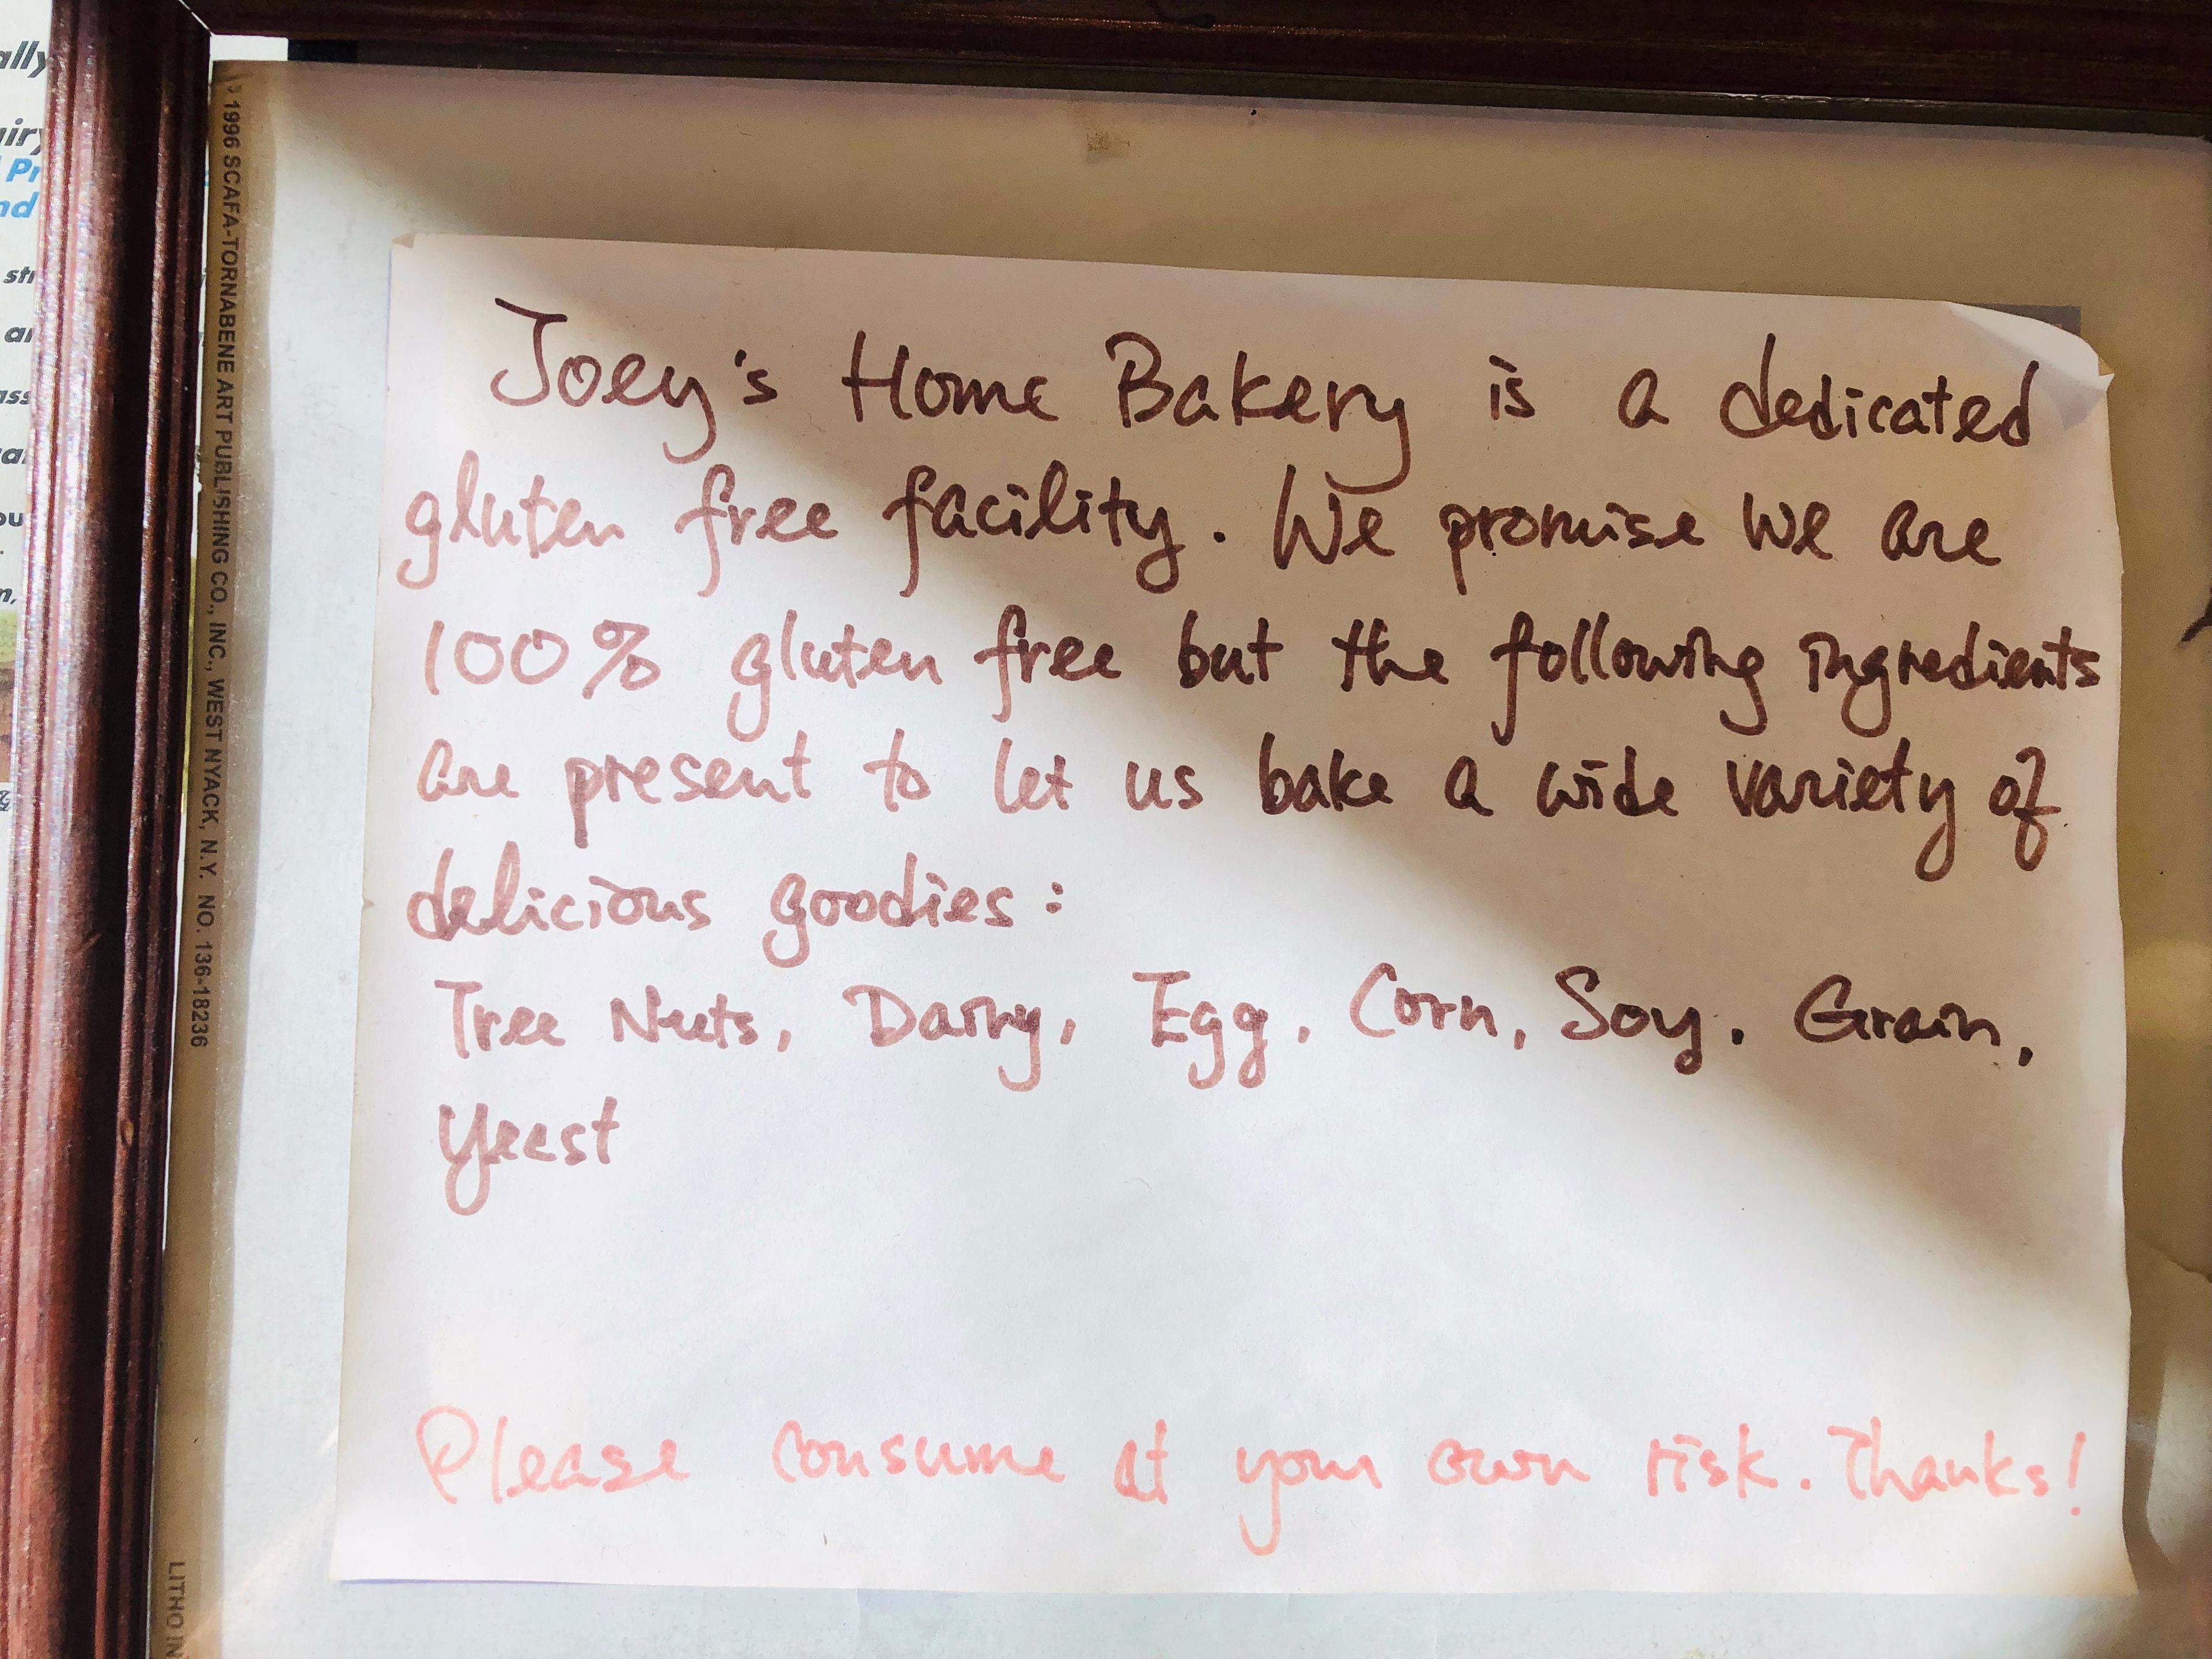 Joey's Home Bakery is a dedicated
gluten free facility. We promise we are
100% gluten free but the following ingredients
are present to let us bake a wide variety of
delicious goodies:
Tree Nuts, Dairy, Egg, Corn, Soy, Grain,
Yeest
Please consume at your own risk. Thanks!
1996 SCAFA-TORNABENE ART PUBLISHING CO., INC., WEST NYACK, N.Y. NO. 136-18236
LITHO IN
ally
Pr
nd